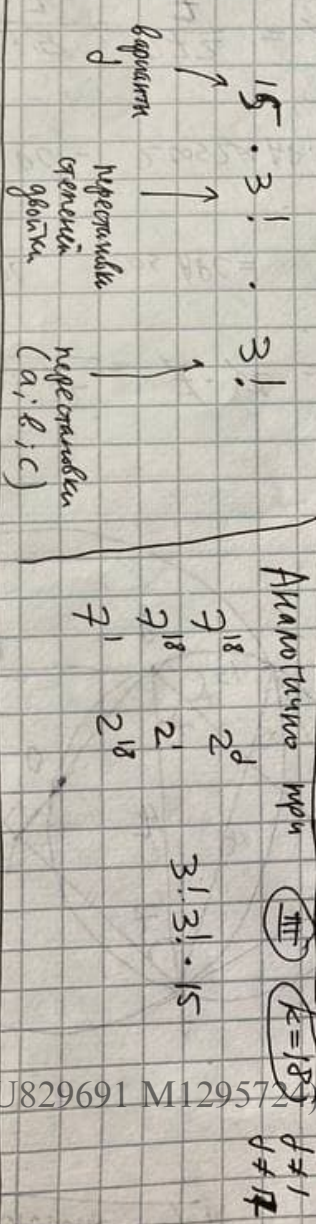 15 · 3! · 3!
варианты
перестановки
степеней
двойки
перестановки
(a; b; c)
Аналогично при III k=18
d≠1
d≠17
7^18 2^d
7^18 2^1
7^1 2^18
3! 3! · 15
U829691 M129572